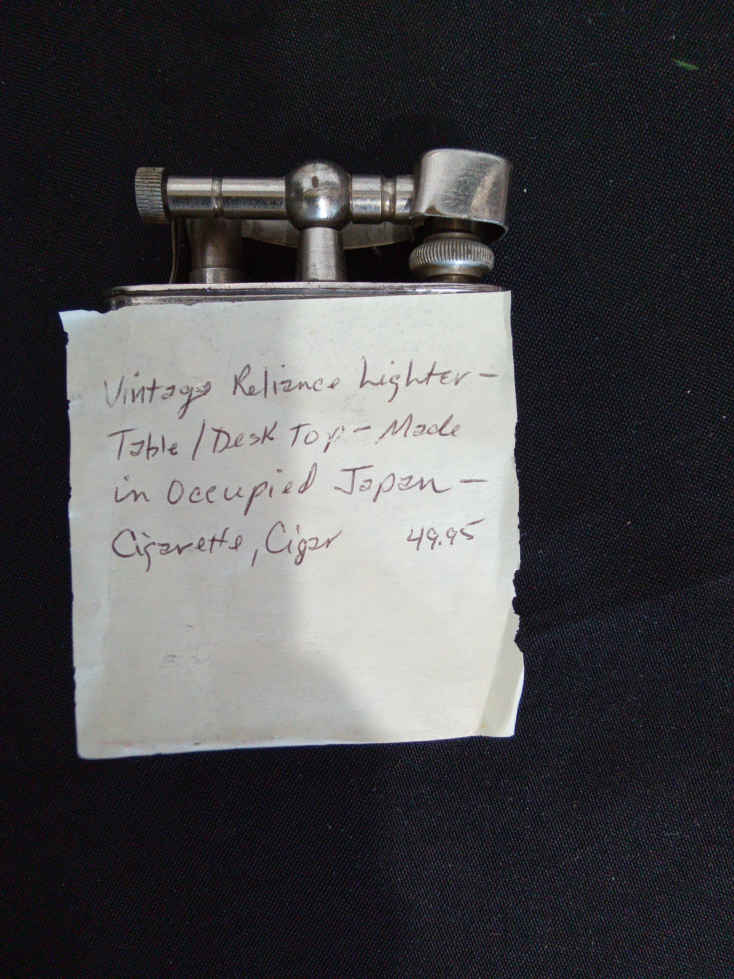 Vintage Reliance Lighter -
Table / Desk Top - Made
in Occupied Japan -
Cigarette, Cigar 49.95